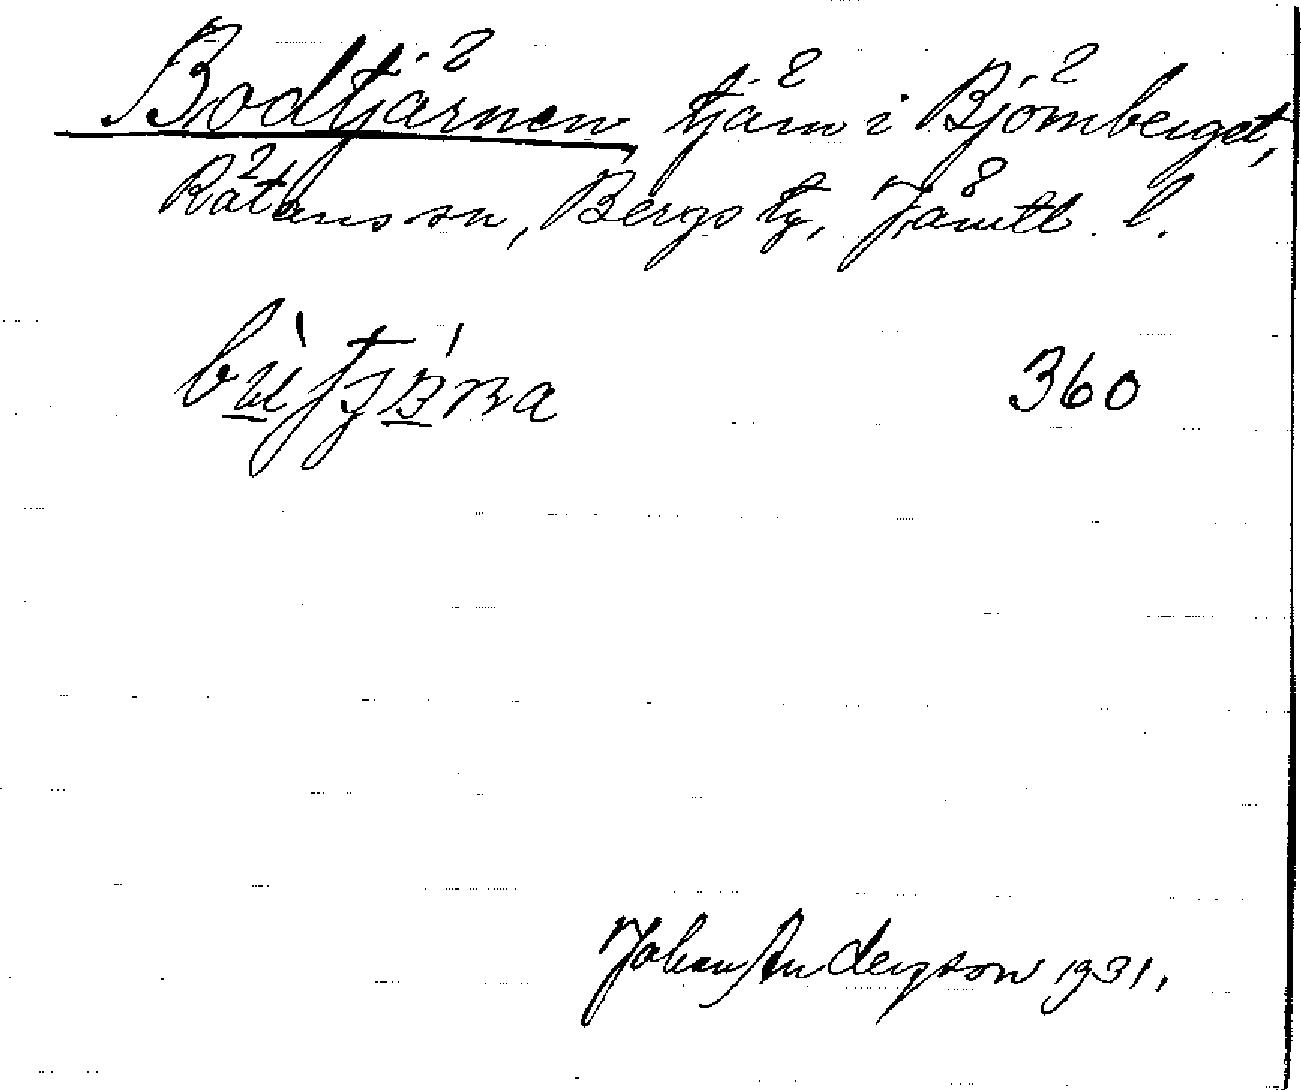 Bodtjärnen tjärn i Björnberget,
Rätans sn, Bergs tg, Jämtl. l.
360
Johan Anderson 1931.